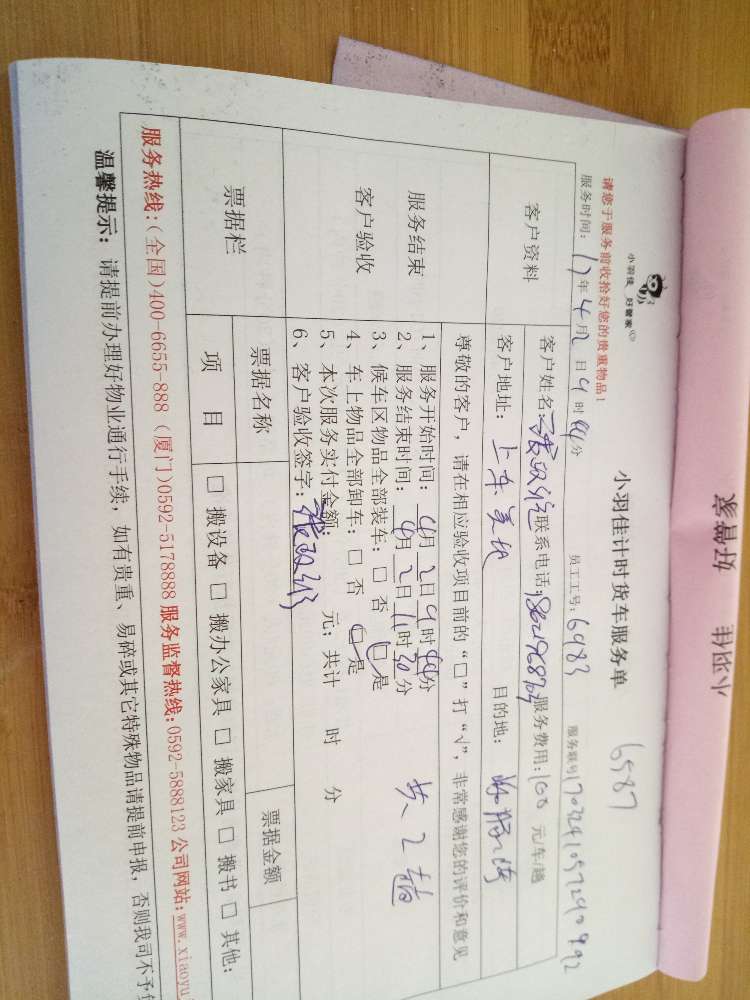 小羽佳 好管家
小羽佳 好管家
请您于服务前收拾好您的贵重物品!
小羽佳计时货车服务单
6987
服务时间: 17年4月2日9时40分 员工工号: 6983 服务联号
客户资料
客户姓名: 联系电话: 服务费用: 100 元/车/趟
客户地址: 目的地:
尊敬的客户,请在相应验收项目前的“□”打“√”,非常感谢您的评价和意见
服务结束
客户验收
1、服务开始时间: 4月2日9时40分
2、服务结束时间: 4月2日11时30分
共2趟
3、候车区物品全部装车: □ 否 □ 是
4、车上物品全部卸车: □ 否 □ 是
5、本次服务实付金额: 元; 共计 时 分
6、客户验收签字:
票据栏
票据名称 票据金额
项 目 □ 搬设备 □ 搬办公家具 □ 搬家具 □ 搬书 □ 其他:
服务热线:(全国)400-6655-888 (厦门)0592-5178888 服务监督热线:0592-5888123 公司网站:www.xiaoyu
温馨提示: 请提前办理好物业通行手续,如有贵重、易碎或其它特殊物品请提前申报,否则我司不予